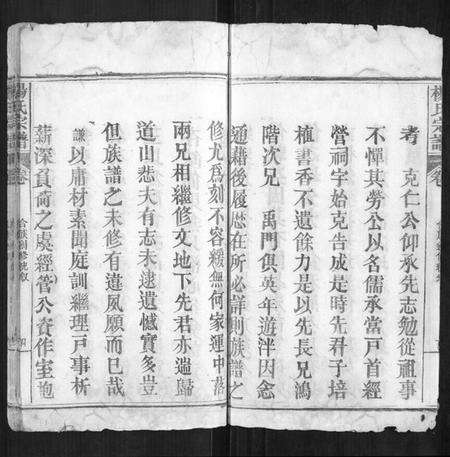 楊氏宗譜
卷
考 克仁公仰承先志勉從祖事
不憚其勞公以名儒承當戶首經
營祠宇始克告成是時先君子培
植書香不遺餘力是以先長兄鴻
階次兄 禹門俱英年遊泮因念
通籍後履歷在所必詳則族譜之
修尤為刻不容緩無何家運中落
兩兄相繼修文地下先君亦遄歸
道山悲夫有志未逮遺憾實多豈
但族譜之未修有違夙願而已哉
謙以庸材素聞庭訓繼理戶事析
薪深負荷之虞經營公資作室抱
楊氏宗譜
卷
合族創修族敘
四